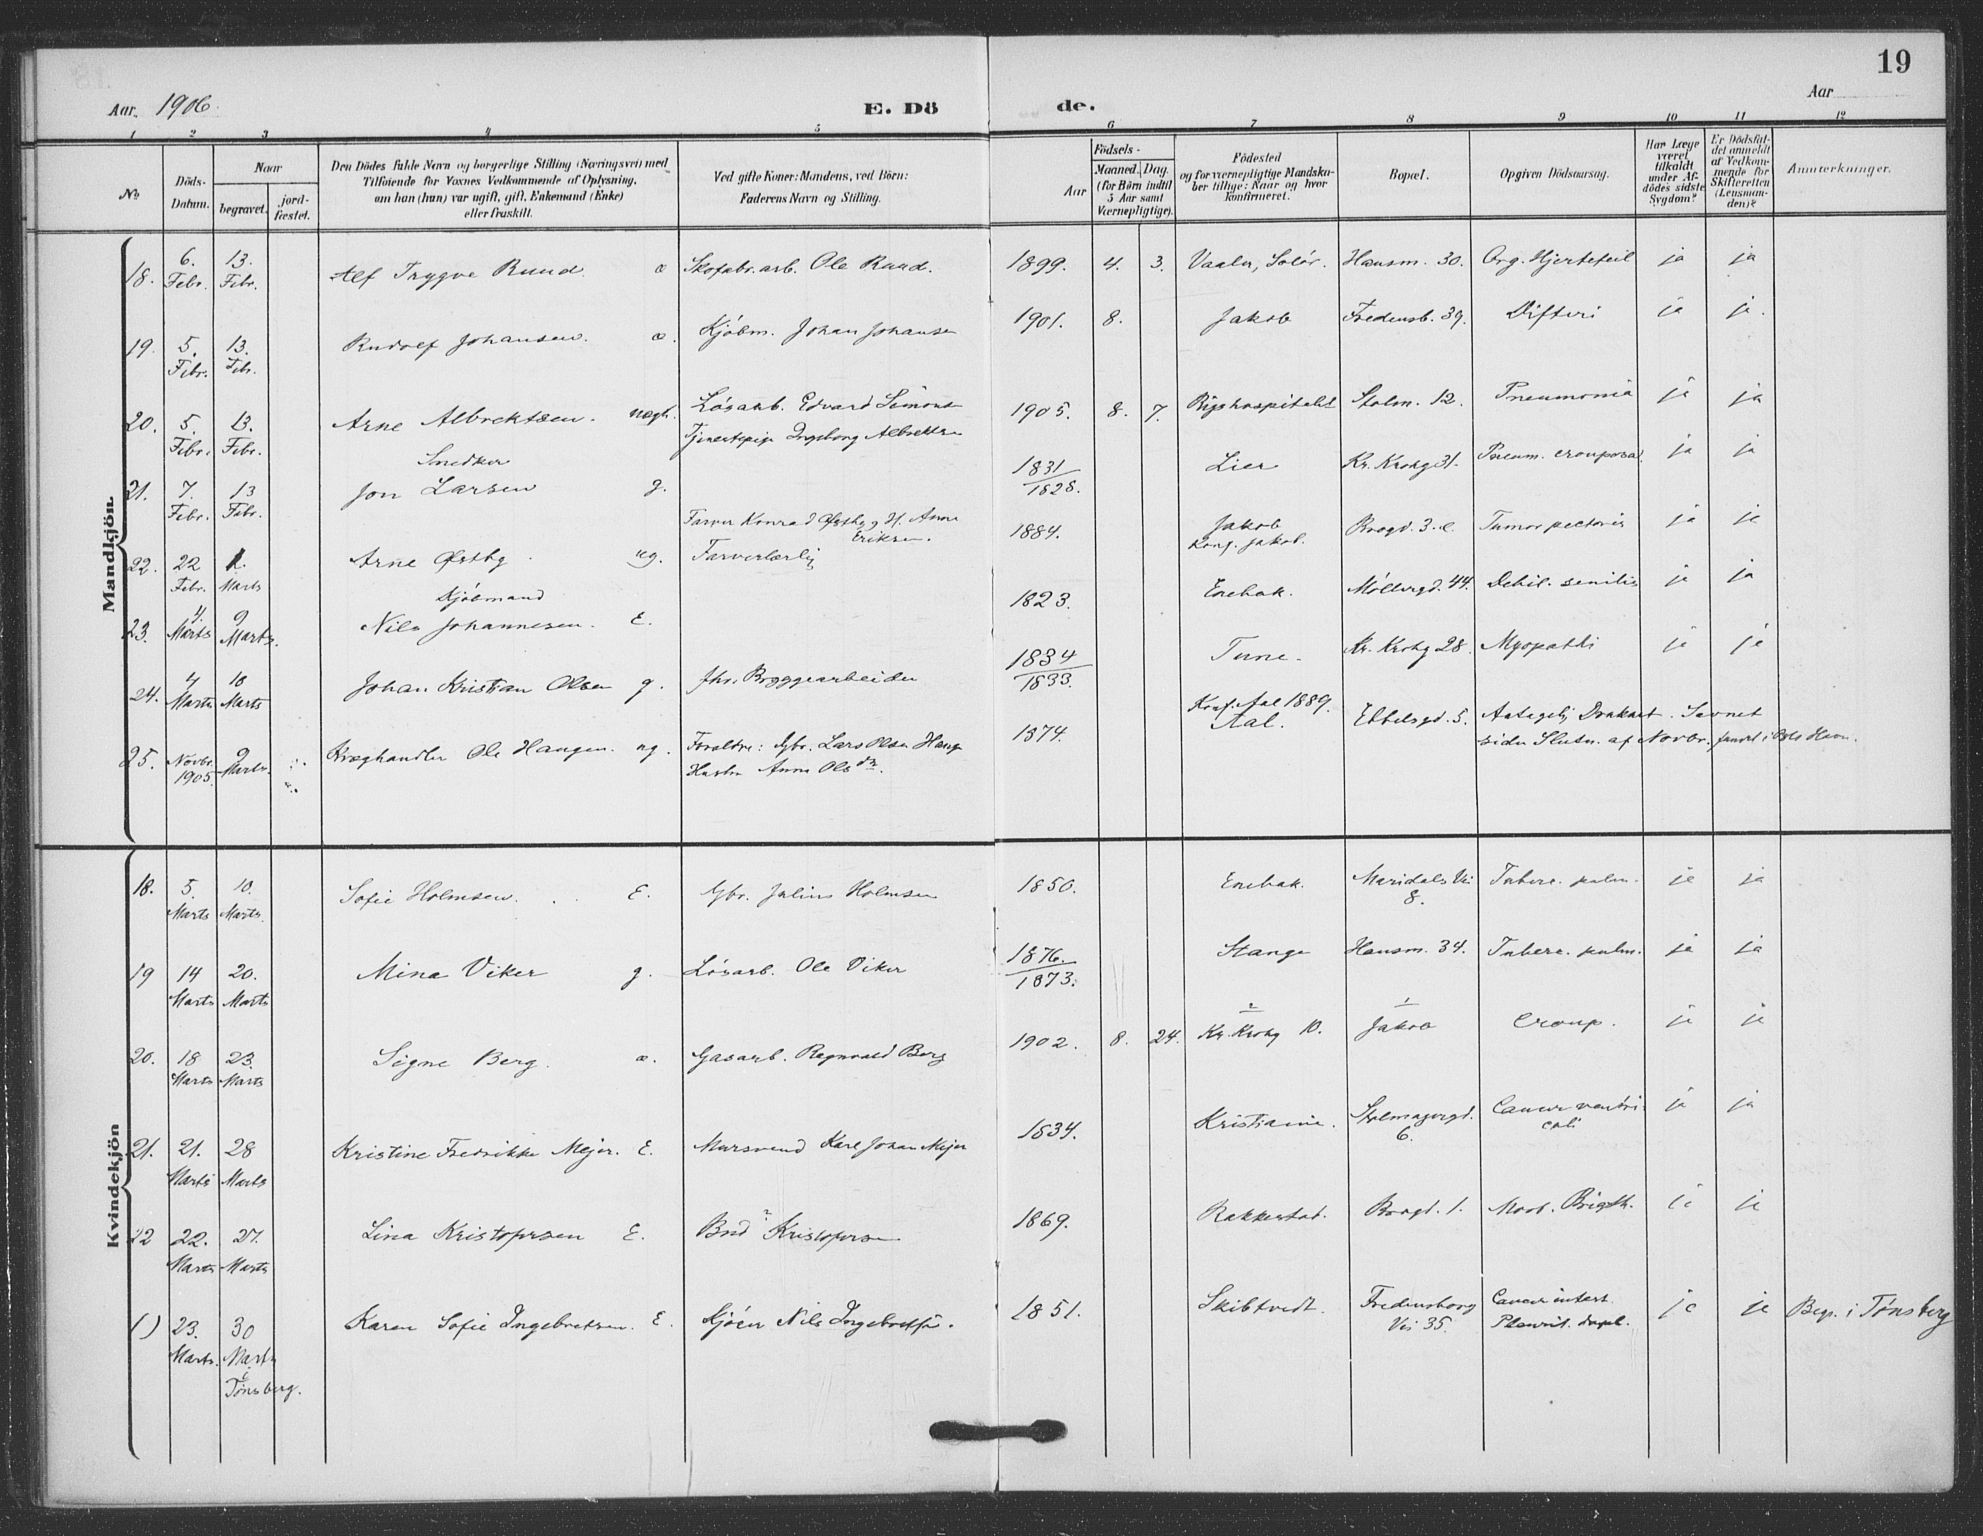 19
Aar. 1906. E. Dö de. Aar
1 2 3 4 5 6 7 8 9 10 11 12
No.
Döds-
Datum.
Naar
begravet.
jord-
fæstet.
Den Dödes fulde Navn og borgerlige Stilling (Næringsvei) med
Tilföiende for Voxnes Vedkommende af Oplysning,
om han (hun) var ugift, gift, Enkemand (Enke)
eller fraskilt.
Ved gifte Koner: Mandens, ved Börn:
Faderens Navn og Stilling.
Födsels-
Aar
Maaned. Dag.
(for Börn indtil
5 Aar samt
Værnepligtige).
Födested
og for værnepligtige Mandska-
ber tillige: Naar og hvor
konfirmeret.
Bopæl.
Opgiven Dödsaarsag.
Har Læge
været
tilkaldt
under Af-
dödes sidste
Sygdom?
Er Dödsfal-
det anmeldt
af Vedkom-
mende for
Skifteretten
(Lensman-
den)?
Anmærkninger.
Mandkjön.
18. 6. Febr. 13. Febr. Alf Trygve Ruud. æ Skofabr.arb. Ole Ruud. 1899. 4. 3. Vaaler, Solör. Hausm. 30. Org. Hjertefeil ja ja
19. 5. Febr. 13. Febr. Rudolf Johansen. æ. Kjöbm. Johan Johansen 1901. 8. Jakob Fredensb. 39. Difteri ja ja.
20. 5. Febr. 13. Febr. Arne Albrektsen. uægt. Lösarb. Edvard Simons
Tjenestepige Ingeborg Albrektsen 1905. 8. 7. Rigshospitalet Stolm. 12. Pneumonia ja ja
21. 7. Febr. 13 Febr. Snedker
Jon Larsen g. 1831/1828. Lier Kr. Krohg 31. Pneum. crouposa. ja ja
22. 22 Febr. 1. Marts Arne Østby ug. Farver Konrad Østby og H. Anna
Eriksen.
Farverlærling 1884. Jakob
Konf. Jakob. Brogd. 3. c. Tumor pectoris ja ja
23. 4. Marts 9 Marts. Kjöbmand
Nils Johannesen. E. 1823. Enebak. Möllergd. 44. Debil. senilis ja ja
24. 4 Marts 10 Marts Johan Kristian Olsen g. fhv. Bryggearbeider 1834/1833. Tune. Kr. Krohg 28. Myopathi ja ja
25. Novbr. 1905. 9 Marts. Kræghandler Ole Haugen. ug. Foreldre: Gbr. Lars Olsen Haug
Hustru Anna Olsdtr. 1874. Konf. Aal 1889.
Aal. Ebbelsgd. 5. Antagelig Druknet. Savnet
siden Slutn. af Novbr., fundet i Oslo Havn.
Kvindekjön
18. 5. Marts 10. Marts. Sofie Holmsen. E. Gbr. Julius Holmsen 1850. Enebak. Maridals Vei
8. Tuberc. pulm. ja ja
19 14 Marts 20. Marts Mina Viker g. Lösarb. Ole Viker 1876./1873. Stange Hausm. 34. Tuberc. pulm. ja ja
20. 18 Marts 23 Marts Signe Berg. æ. Gasarb. Ragnvald Berg 1902. 8. 24. 2
Kr. Krohg 10. 1
Jakob Croup. ja ja
21. 21. Marts 28 Marts Kristine Fredrikke Mejer. E. Mursvend Karl Johan Mejer 1834. Kristiania. Skolmagergd.
6. Cancer ventri-
culi ja ja
22 22. Marts 27. Marts Lina Kristofersen E. Bud ? Kristofersen 1869. Rakkestad. Brogd. 1. Morb. Brigth. ja ja
1) 23. Marts. 30 Marts
i
Tönsberg. Karen Sofie Ingebretsen. E. Gjöer Nils Ingebretsen. 1851. Skibtvedt. Fredensborg
Vei 35. Cancer intest.
Pleurit. dupl. ja ja Begr. i Tönsberg